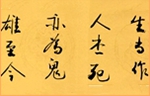 生当作
人杰死
亦为鬼
雄至今